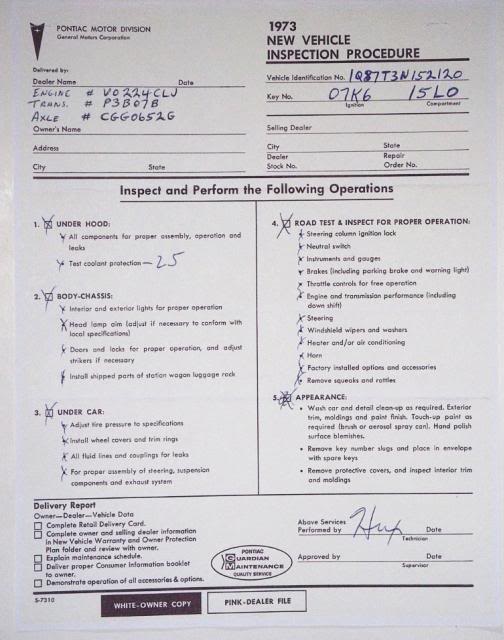 PONTIAC MOTOR DIVISION
General Motors Corporation
1973
NEW VEHICLE
INSPECTION PROCEDURE
Delivered by:
Dealer Name Date
ENGINE # V0224CLJ
TRANS. # P3B07B
AXLE # CGG0652G
Owner's Name
Address
City State
Vehicle Identification No. 1Q87T3N152120
Key No. 07K6 15L0
Ignition Compartment
Selling Dealer
City State
Dealer Repair
Stock No. Order No.
Inspect and Perform the Following Operations
1. UNDER HOOD:
All components for proper assembly, operation and
leaks
Test coolant protection — 25
2. BODY-CHASSIS:
Interior and exterior lights for proper operation
Head lamp aim (adjust if necessary to conform with
local specifications)
Doors and locks for proper operation, and adjust
strikers if necessary
Install shipped parts of station wagon luggage rack
3. UNDER CAR:
Adjust tire pressure to specifications
Install wheel covers and trim rings
All fluid lines and couplings for leaks
For proper assembly of steering, suspension
components and exhaust system
4. ROAD TEST & INSPECT FOR PROPER OPERATION:
Steering column ignition lock
Neutral switch
Instruments and gauges
Brakes (including parking brake and warning light)
Throttle controls for free operation
Engine and transmission performance (including
down shift)
Steering
Windshield wipers and washers
Heater and/or air conditioning
Horn
Factory installed options and accessories
Remove squeaks and rattles
5. APPEARANCE:
• Wash car and detail clean-up as required. Exterior
trim, moldings and paint finish. Touch-up paint as
required (brush or aerosol spray can). Hand polish
surface blemishes.
• Remove key number slugs and place in envelope
with spare keys
• Remove protective covers, and inspect interior trim
and moldings
Delivery Report
Owner—Dealer—Vehicle Data
Complete Retail Delivery Card.
Complete owner and selling dealer information
in New Vehicle Warranty and Owner Protection
Plan folder and review with owner.
Explain maintenance schedule.
Deliver proper Consumer Information booklet
to owner.
Demonstrate operation of all accessories & options.
PONTIAC
GUARDIAN
MAINTENANCE
QUALITY SERVICE
Above Services
Performed by Date
Technician
Approved by Date
Supervisor
S-7310
WHITE-OWNER COPY
PINK-DEALER FILE